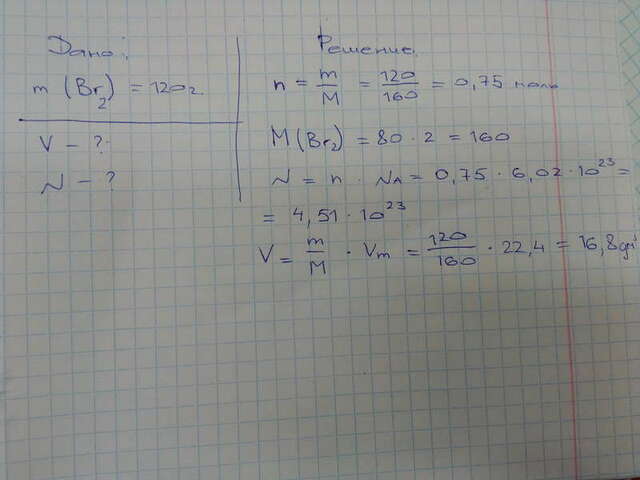 Дано:
m (Br₂) = 120г.
V – ?
N – ?
Решение.
n = m/M = 120/160 = 0,75 моль
M(Br₂) = 80 · 2 = 160
N = n · NA = 0,75 · 6,02 · 10²³ =
= 4,51 · 10²³
V = m/M · Vm = 120/160 · 22,4 = 16,8 дм³